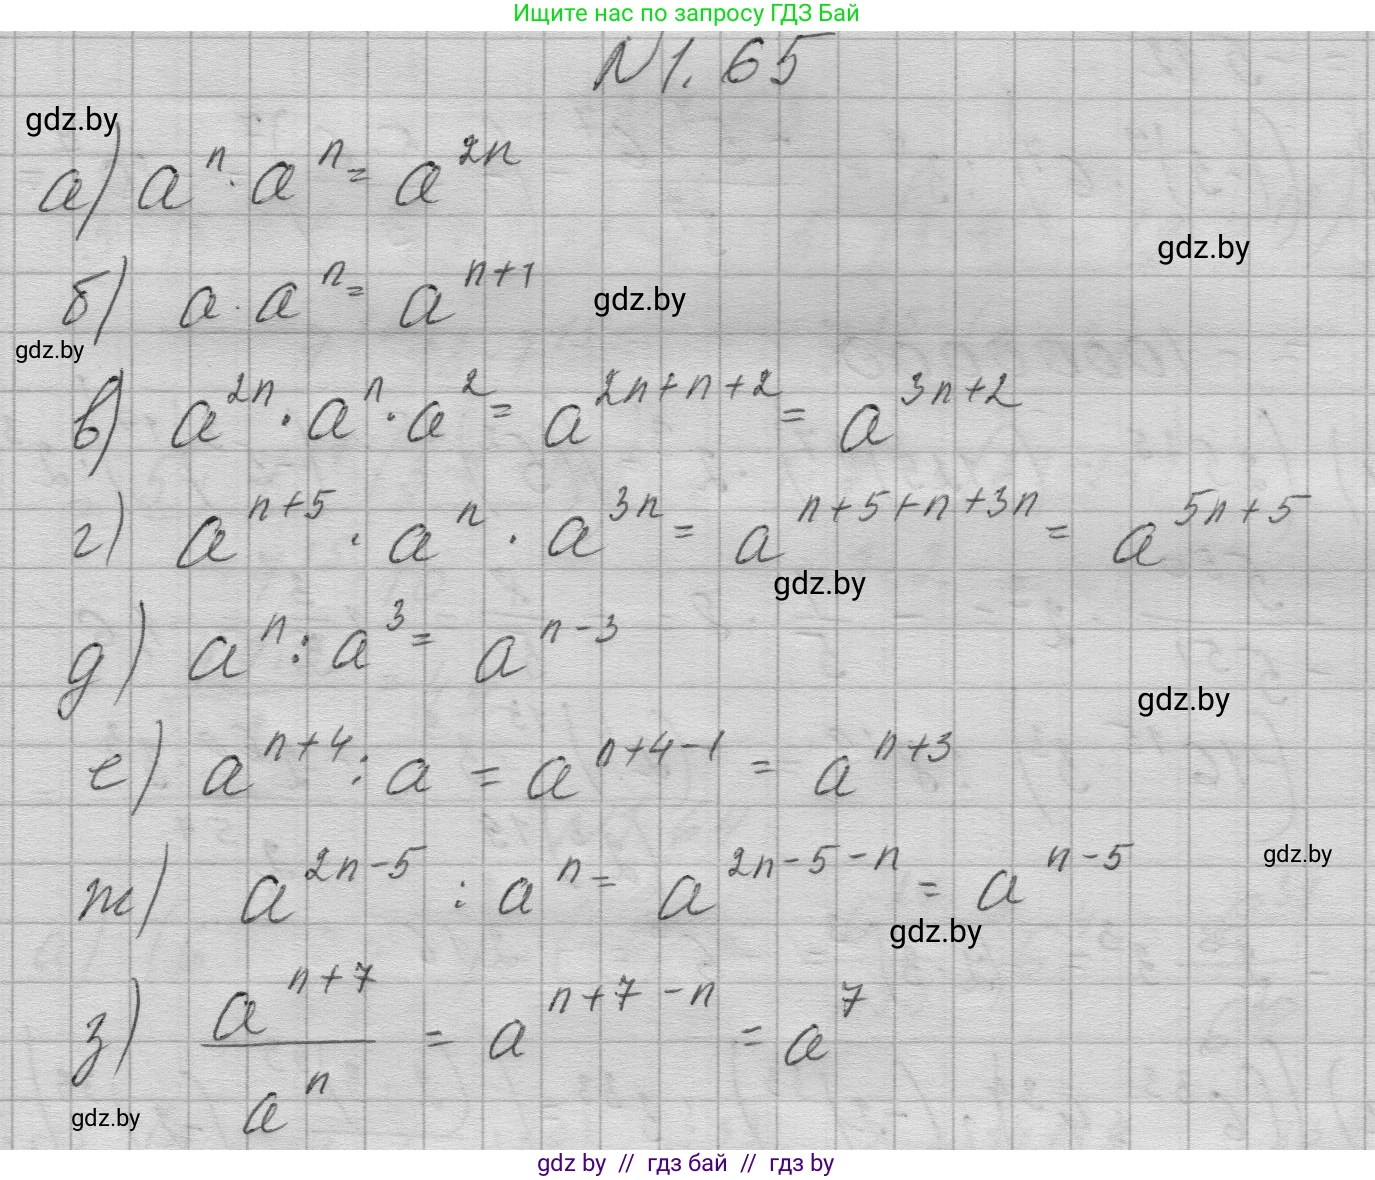 Ищите нас по запросу ГДЗ Бай
N 1. 65
gdz.by
а) aⁿ · aⁿ = a²ⁿ
gdz.by
б) a · aⁿ = aⁿ⁺¹
gdz.by
gdz.by
в) a²ⁿ · aⁿ · a² = a²ⁿ⁺ⁿ⁺² = a³ⁿ⁺²
г) aⁿ⁺⁵ · aⁿ · a³ⁿ = aⁿ⁺⁵⁺ⁿ⁺³ⁿ = a⁵ⁿ⁺⁵
gdz.by
д) aⁿ : a³ = aⁿ⁻³
gdz.by
е) aⁿ⁺⁴ : a = aⁿ⁺⁴⁻¹ = aⁿ⁺³
ж) a²ⁿ⁻⁵ : aⁿ = a²ⁿ⁻⁵⁻ⁿ = aⁿ⁻⁵
gdz.by
gdz.by
з) aⁿ⁺⁷ / aⁿ = aⁿ⁺⁷⁻ⁿ = a⁷
gdz.by
gdz by // гдз бай // гдз by